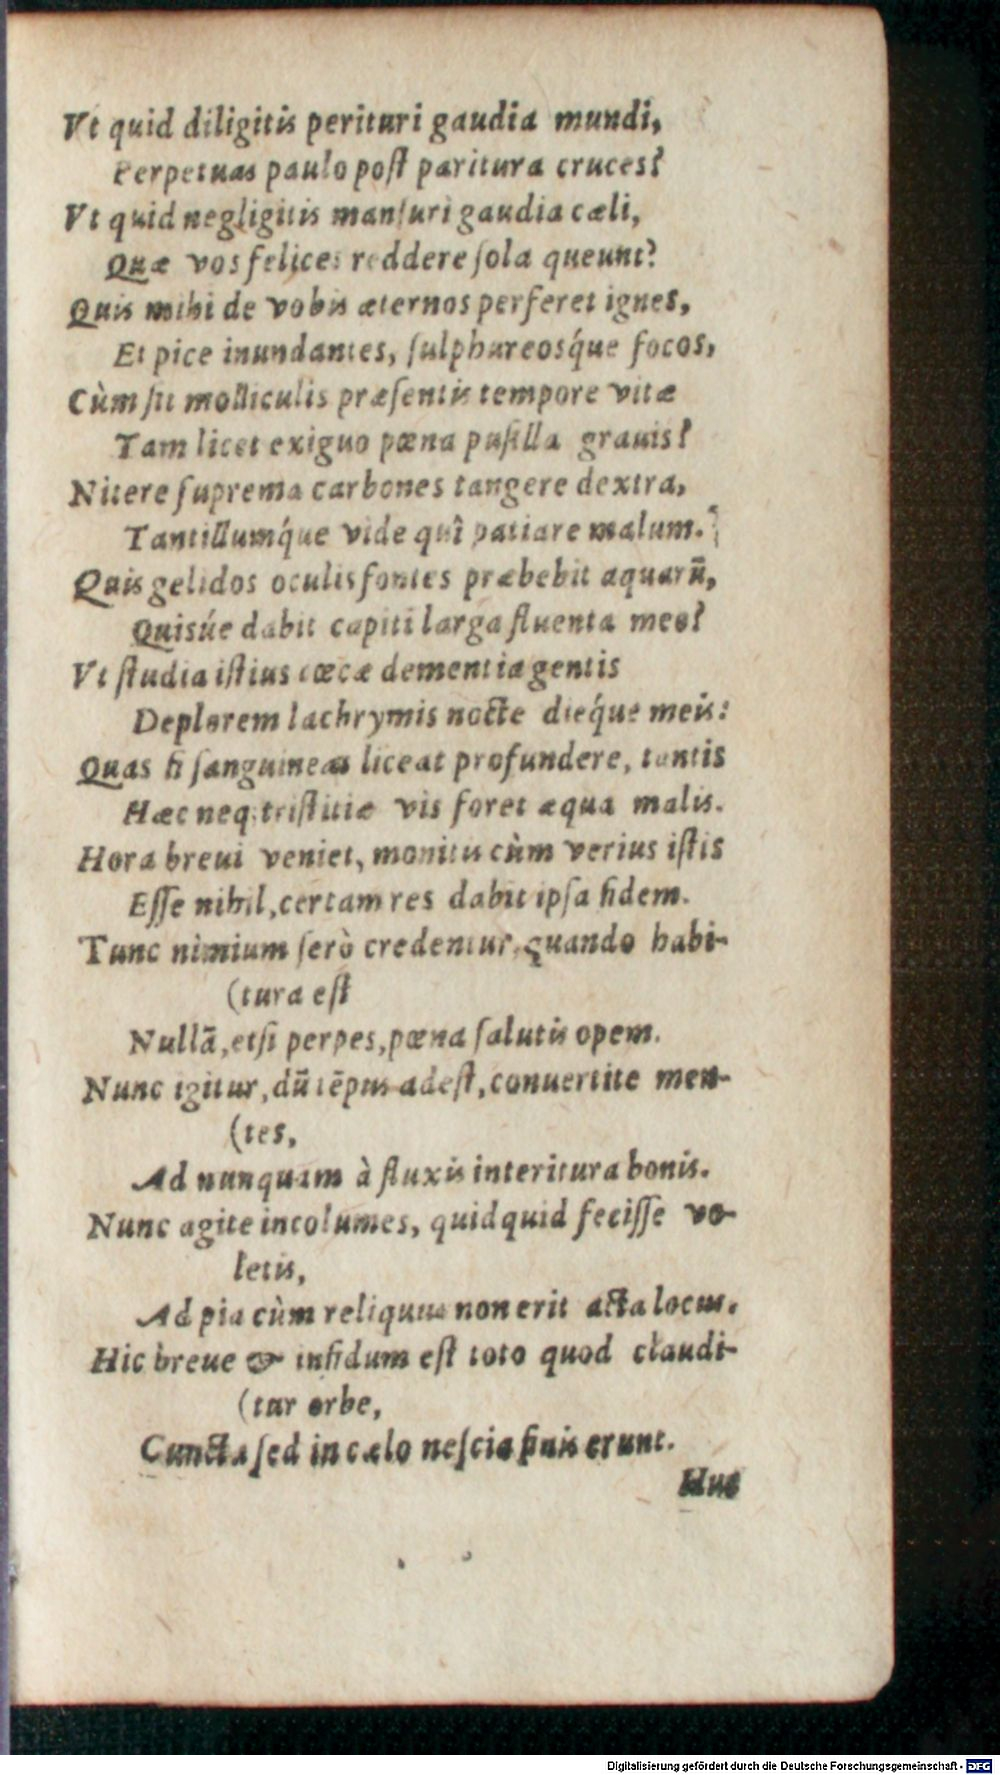 Vt quid diligitis perituri gaudia mundi,
Perpetuas paulo poſt paritura cruces?
Vt quid negligitis manſuri gaudia cæli,
Quæ vos felices reddere ſola queunt?
Quis mihi de vobis æternos perferet ignes,
Et pice inundantes, ſulphureosq́ue focos,
Cùm ſit molliculis præſentis tempore vitæ
Tam licet exiguo pœna puſilla grauis?
Nitere ſuprema carbones tangere dextra,
Tantillumq́ue vide quî patiare malum.
Quis gelidos oculis fontes præbebit aquarũ,
Quisúe dabit capiti larga fluenta meo?
Vt ſtudia iſtius cœcæ dementia gentis
Deplorem lachrymis nocte dieq́ue meis:
Quas ſi ſanguineas liceat profundere, tantis
Hæc neq; triſtitiæ vis foret æqua malis.
Hora breui veniet, monitis cùm verius iſtis
Eſſe nihil, certam res dabit ipſa fidem.
Tunc nimium ſerò credentur, quando habi-
(tura eſt
Nullã, etſi perpes, pœna ſalutis opem.
Nunc igitur, dũ tẽpus adeſt, conuertite men-
(tes,
Ad nunquam à fluxis interitura bonis.
Nunc agite incolumes, quidquid feciſſe vo-
letis,
Ad pia cùm reliquus non erit acta locus.
Hic breue & infidum eſt toto quod claudi-
(tur orbe,
Cuncta ſed in cælo neſcia finis erunt.
Huc
Digitalisierung gefördert durch die Deutsche Forschungsgemeinschaft - DFG